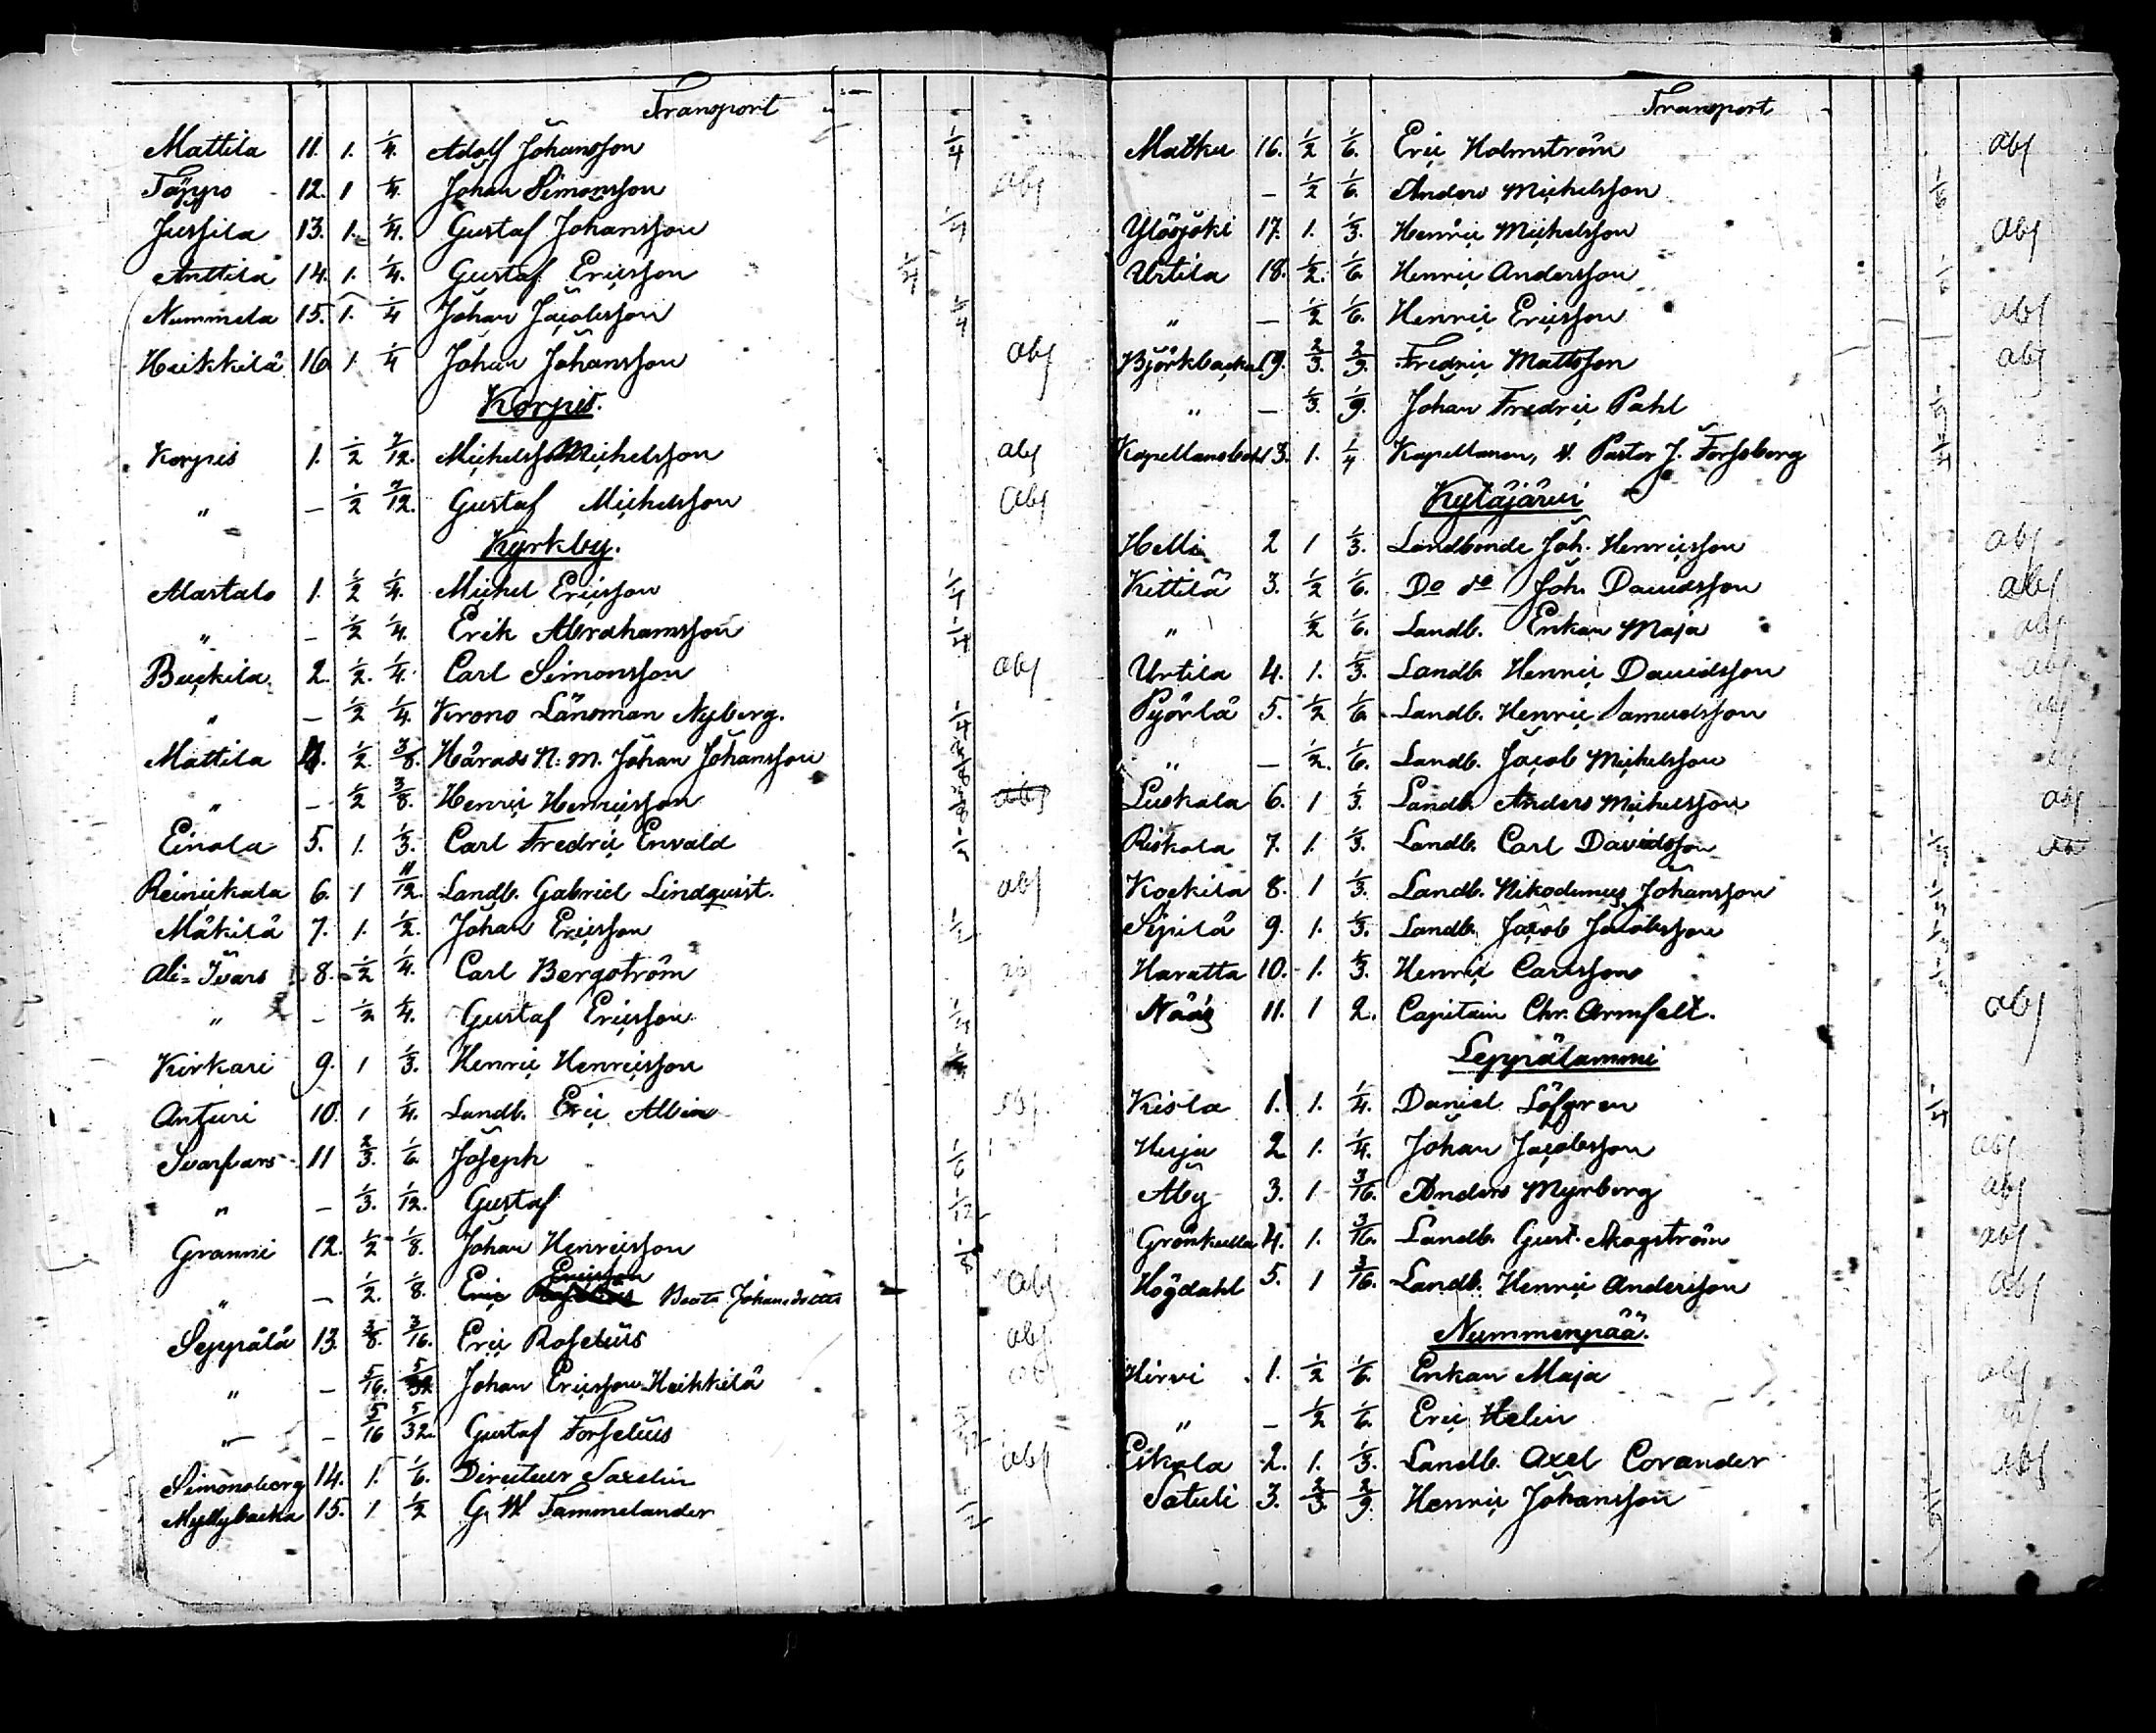 Transport
Mattila 11. 1. 1/4. Adolf Johansson 1/4
Täppo 12. 1 1/4. Johan Simonsson abs
Jussila 13. 1. 1/4. Gustaf Johansson 1/4
Anttila 14. 1. 1/4. Gustaf Ericsson 1/4
Nummela 15. 1. 1/4 Johan Jacobsson 1/4
Heikkilä 16 1 1/4 Johan Johansson abs
Korpis.
Korpis 1. 1/2 7/12. Michelsson Michelsson abs
" — 1/2 7/12. Gustaf Michelsson abs
Kyrkby.
Alastalo 1. 1/2 1/4. Michel Ericsson 1/4
" — 1/2 1/4. Erik Abrahamsson 1/4
Buckila 2. 1/2. 1/4. Carl Simonsson abs
" — 1/2 1/4. Krono Länsman Nyberg. 1/4
Mattila 4. 1/2. 3/8. Härads N: m. Johan Johansson 3/8
" — 1/2 3/8. Henric Henricsson 3/8 abs
Einola 5. 1. 1/3. Carl Fredric Envald 1/3
Reinickala 6. 1 11/12. Landb. Gabriel Lindqvist. abs
Mäkilä 7. 1. 1/2. Johan Ericsson 1/2
Ali-Ivars 8. 1/2 1/4. Carl Bergström abs
" — 1/2 1/4. Gustaf Ericsson 1/4
Kirkari 9. 1 1/3. Henric Henricsson
Anturi 10. 1 1/4. Landb. Eric Albin abs
Svarfvars 11 2/3. 1/6. Joseph 1/6
" — 1/3. 1/12. Gustaf 1/12
Granni 12. 1/2 1/8. Johan Henricsson 1/8
" — 1/2. 1/8. Eric Ericsson Beata Johansdotter abs
Seppälä 13. 3/8. 3/16. Eric Roselius abs
" — 5/16. 5/32 Johan Ericsson Heikkilä abs
" — 5/16 5/32. Gustaf Forselius 5/32
Simonsberg 14. 1. 1/6. Directeur Saxelin abs
Myllybacka 15. 1 1/2 G. W Tammelander 1/2
Transport
Matku 16. 1/2 1/6. Eric Holmström abs
— 1/2 1/6. Anders Michelsson 1/6
Ylösjoki 17. 1. 1/3. Henric Michelsson abs
Urtila 18. 1/2. 1/6. Henric Andersson 1/6
" — 1/2 1/6. Henric Ericsson abs
Björkbacka 19. 2/3. 2/9. Fredric Mattsson abs
" — 1/3. 1/9. Johan Fredric Pahl 1/9
Kapellansbol 3. 1. 1/4 Kapellanen, V. Pastor J. Forssberg 1/4
Kytäjärvi
Helli 2 1 1/3. Landbonde Joh. Henricsson abs
Kittilä 3. 1/2 1/6. Do do Joh. Davidsson abs
" 1/2 1/6. Landb. Enkan Maja abs
Urtila 4. 1. 1/3. Landb. Henric Davidsson abs
Pyörlä 5. 1/2 1/6. Landb. Henric Samuelsson abs
" — 1/2. 1/6. Landb. Jacob Michelsson abs
Luskala 6. 1 1/3. Landb. Anders Michelsson abs
Riskala 7. 1. 1/3. Landb. Carl Davidsson 1/3
Kockila 8. 1 1/3. Landb. Nikodemus Johansson 1/3
Sipilä 9. 1. 1/3. Landb. Jacob Jacobsson 1/3
Haratta 10. 1. 1/3. Henric Carlsson 1/3
Nääs 11. 1 2. Capitain Chr. Armfelt. abs
Leppälammi
Kisla 1. 1. 1/4. Daniel Löfgren 1/4
Herja 2 1. 1/4. Johan Jacobsson abs
Aby 3. 1. 3/16. Anders Myrberg abs
Grönkulla 4. 1. 3/16. Landb. Gust. Skogström abs
Högdahl 5. 1 3/16. Landb. Henric Andersson abs
Nummenpää.
Hirvi 1. 1/2 1/6. Enkan Maja abs
" — 1/2 1/6. Eric Helin abs
Eskola 2. 1. 1/3. Landb. Axel Corander abs
Satuli 3. 2/3. 2/9. Henric Johansson 2/9